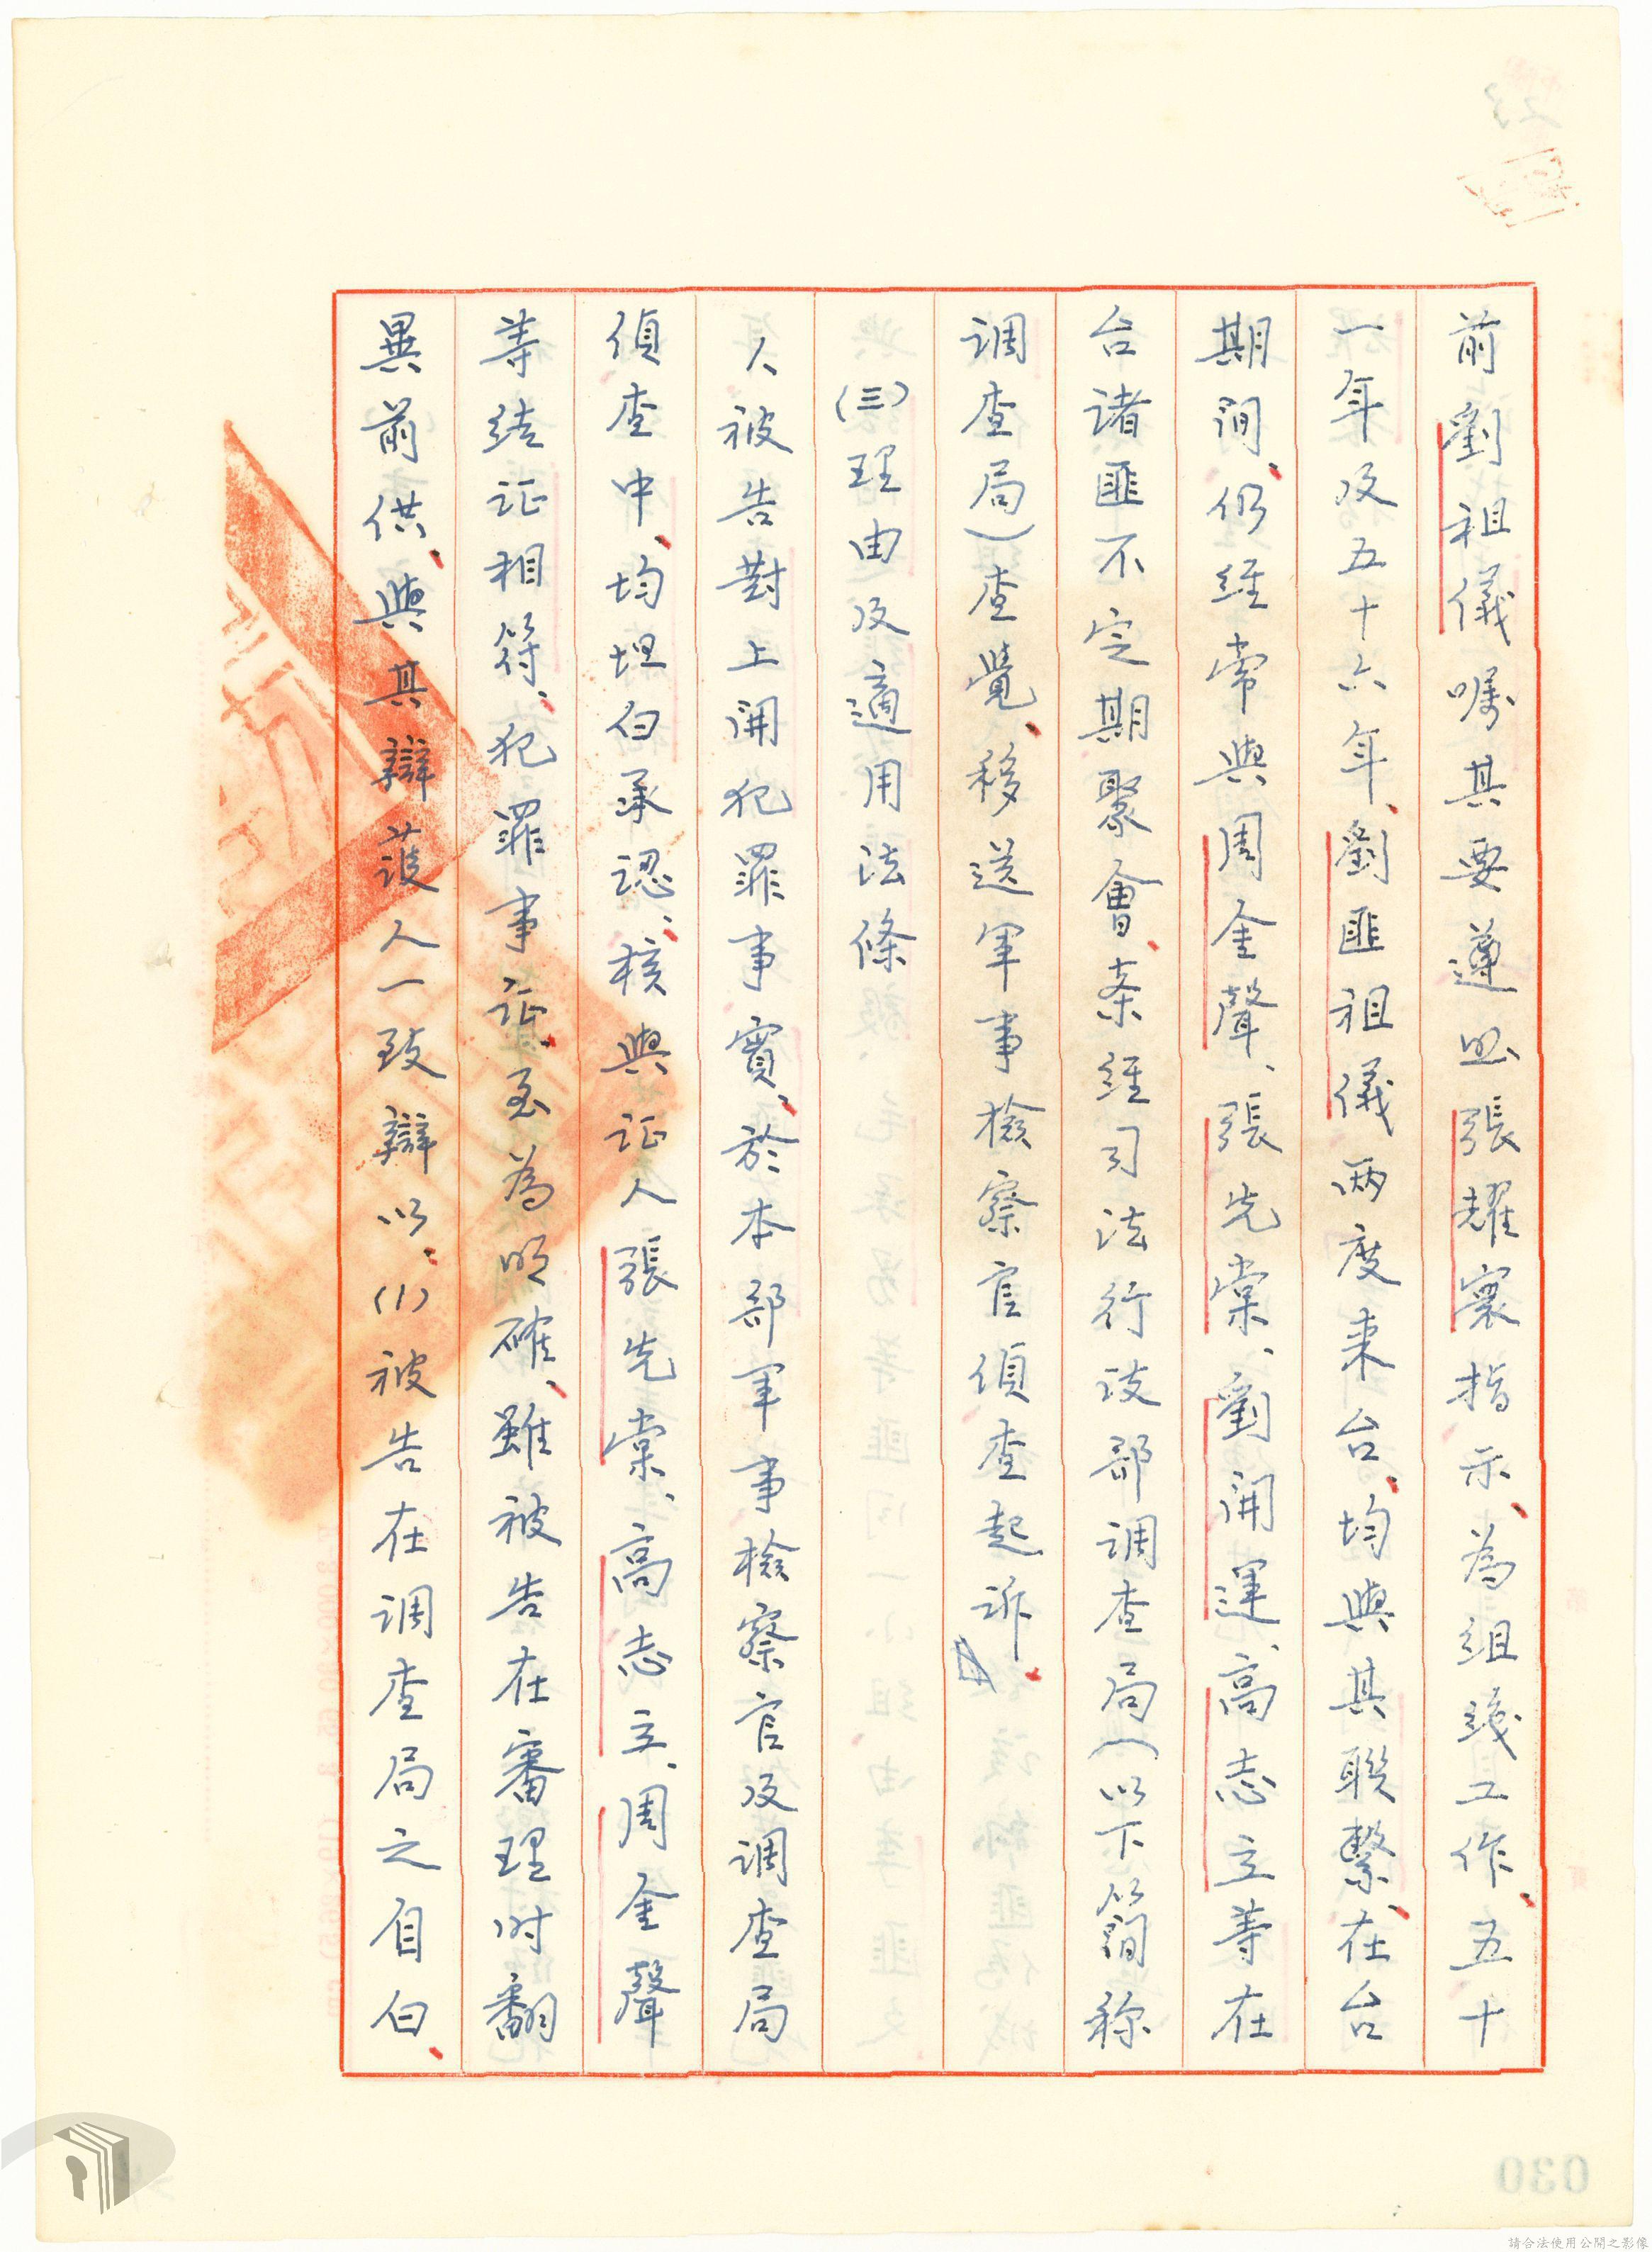 前劉祖儀囑其要遵照張耀寰指示、為組織工作、五十
一年及五十六年、劉匪祖儀兩度來台、均與其聯繫、在台
期间、仍经常與周金聲、張先棠、劉開運、高志立等在
台诸匪不定期聚會、案经司法行政部调查局(以下简称
调查局)查覺、移送军事檢察官偵查起诉。
(三)理由及適用法條
人被告對上開犯罪事實、於本部军事檢察官及调查局
偵查中、均坦白承認、核與证人張先棠、高志立、周金聲
等结证相符、犯罪事证、至為明確、雖被告在審理时翻
異前供、與其辯護人一致辯以、(1)被告在调查局之自白、
030
請合法使用公開之影像